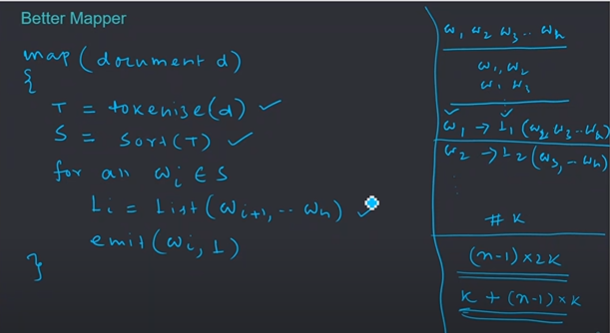 Better Mapper
map (document d)
{
T = tokenise(d) ✓
S = Sort(T) ✓
for all wi ∈ S
Li = List(wi+1, .. wn) ✓
emit(wi, L)
}
w1 w2 w3 .. wn
w1, w2
w1 w3
w1 → L1 (w2, w3 .. wn)
w2 → L2 (w3, - wn)
# K
(n-1) × 2K
K + (n-1) × K